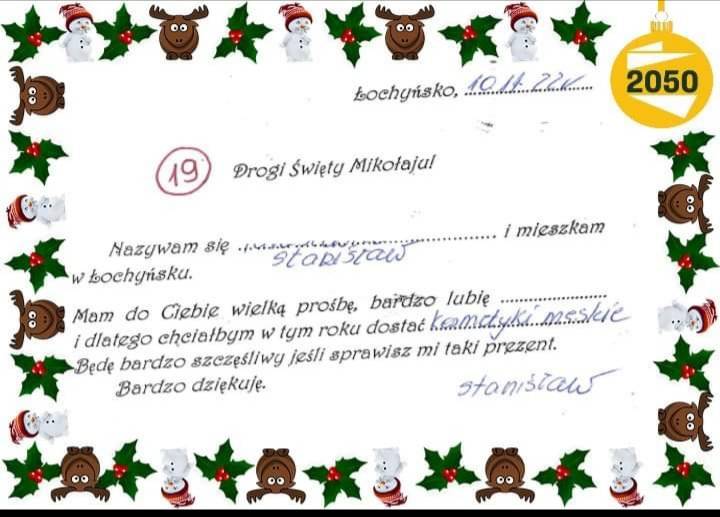 2050
Łochyńsko, 10.11.22r
19 Drogi Święty Mikołaju!
Nazywam się ........................... i mieszkam
stanisław
w Łochyńsku.
Mam do Ciebie wielką prośbę, bardzo lubię ..................
i dlatego chciałbym w tym roku dostać kosmetyki męskie
Będę bardzo szczęśliwy jeśli sprawisz mi taki prezent.
Bardzo dziękuję.
stanisław